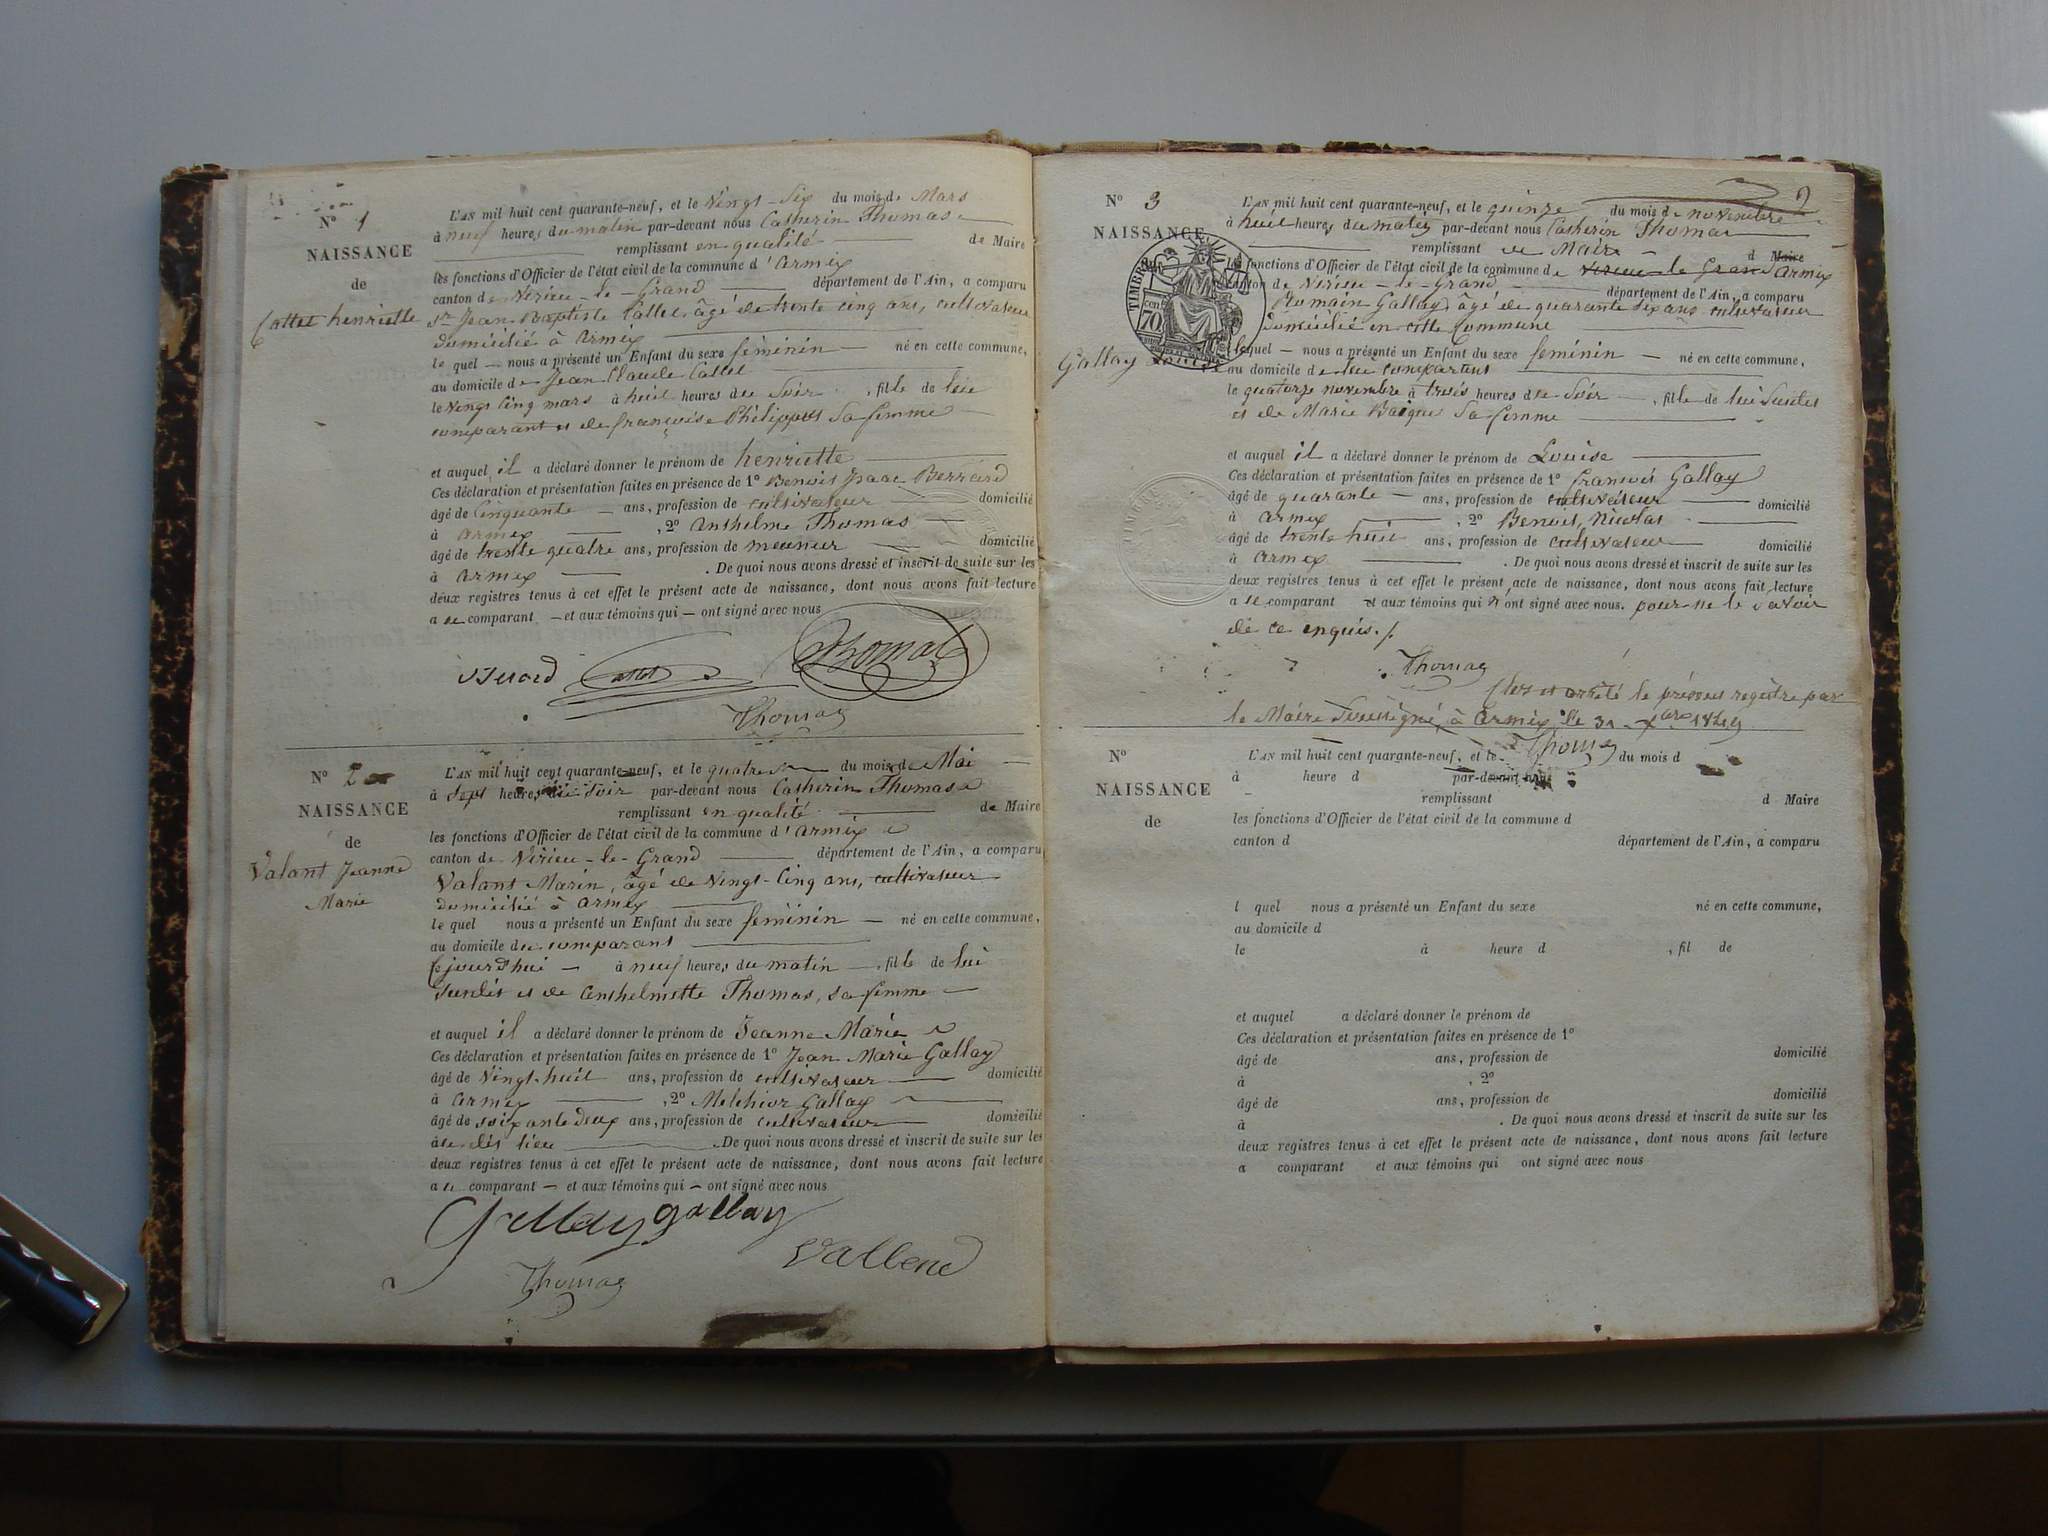 N° 1
NAISSANCE
de
Cattet henriette
L'AN mil huit cent quarante-neuf, et le vingt-six du mois de Mars
à neuf heures du matin par-devant nous Catherin Thomas
remplissant en qualité de Maire
les fonctions d'Officier de l'état civil de la commune d'armix
canton de Virieu-le-Grand département de l'Ain, a comparu
sr Jean Baptiste Cattet, âgé de trente cinq ans, cultivateur
domicilié à armix
le quel nous a présenté un Enfant du sexe féminin né en cette commune,
au domicile de Jean Claude Cattet
le vingt cinq mars à huit heures du soir, fille de lui
comparant et de françoise Philippes sa femme
et auquel il a déclaré donner le prénom de henriette
Ces déclaration et présentation faites en présence de 1° Benoit Isaac Berrard
âgé de Cinquante ans, profession de cultivateur domicilié
à armix, 2° anthelme Thomas
âgé de trente quatre ans, profession de meunier domicilié
à armix. De quoi nous avons dressé et inscrit de suite sur les
deux registres tenus à cet effet le présent acte de naissance, dont nous avons fait lecture
au comparant et aux témoins qui ont signé avec nous
Thomas
Thomas
N° 2
NAISSANCE
de
Valant Jeanne
Marie
L'AN mil huit cent quarante-neuf, et le quatre du mois de Mai
à sept heures du soir par-devant nous Catherin Thomas
remplissant en qualité de Maire
les fonctions d'Officier de l'état civil de la commune d'armix
canton de Virieu-le-Grand département de l'Ain, a comparu
Valant Marin, âgé de vingt-cinq ans, cultivateur
domicilié à armix
le quel nous a présenté un Enfant du sexe féminin né en cette commune,
au domicile du comparant
cejourd'hui à neuf heures du matin, fille de lui
susdit et de anthelmette Thomas, sa femme
et auquel il a déclaré donner le prénom de Jeanne Marie
Ces déclaration et présentation faites en présence de 1° Jean Marie Gallay
âgé de vingt-huit ans, profession de cultivateur domicilié
à armix, 2° Melchior Gallay
âgé de soixante deux ans, profession de cultivateur domicilié
au dit lieu. De quoi nous avons dressé et inscrit de suite sur les
deux registres tenus à cet effet le présent acte de naissance, dont nous avons fait lecture
au comparant et aux témoins qui ont signé avec nous
Gallay gallay
Thomas
2
N° 3
NAISSANCE
TIMBRE
70
Gallay Louise
L'AN mil huit cent quarante-neuf, et le quinze du mois de novembre
à huit heures du matin par-devant nous Catherin Thomas
remplissant de Maire d Maire
les fonctions d'Officier de l'état civil de la commune de Virieu-le-Grand armix
canton de Virieu-le-Grand département de l'Ain, a comparu
Romain Gallay, âgé de quarante six ans cultivateur
domicilié en cette Commune
lequel nous a présenté un Enfant du sexe féminin né en cette commune,
au domicile de lui comparant
le quatorze novembre à trois heures du soir, fille de lui susdit
et de Marie sa femme
et auquel il a déclaré donner le prénom de Louise
Ces déclaration et présentation faites en présence de 1° François Gallay
âgé de quarante ans, profession de cultivateur domicilié
à armix, 2° Benoit Nicolas
âgé de trente huit ans, profession de cultivateur domicilié
à armix. De quoi nous avons dressé et inscrit de suite sur les
deux registres tenus à cet effet le présent acte de naissance, dont nous avons fait lecture
au comparant et aux témoins qui n'ont signé avec nous. pour ne le savoir
de ce enquis./.
Thomas
Clos et arrêté le présent registre par
le Maire soussigné, à armix, le 31 Xbre 1849
Thomas
N°
NAISSANCE
de
L'AN mil huit cent quarante-neuf, et le du mois d
à heure d par-devant nous
remplissant d Maire
les fonctions d'Officier de l'état civil de la commune d
canton d département de l'Ain, a comparu
l quel nous a présenté un Enfant du sexe né en cette commune,
au domicile d
le à heure d , fil de
et auquel a déclaré donner le prénom de
Ces déclaration et présentation faites en présence de 1°
âgé de ans, profession de domicilié
à , 2°
âgé de ans, profession de domicilié
à . De quoi nous avons dressé et inscrit de suite sur les
deux registres tenus à cet effet le présent acte de naissance, dont nous avons fait lecture
a comparant et aux témoins qui ont signé avec nous